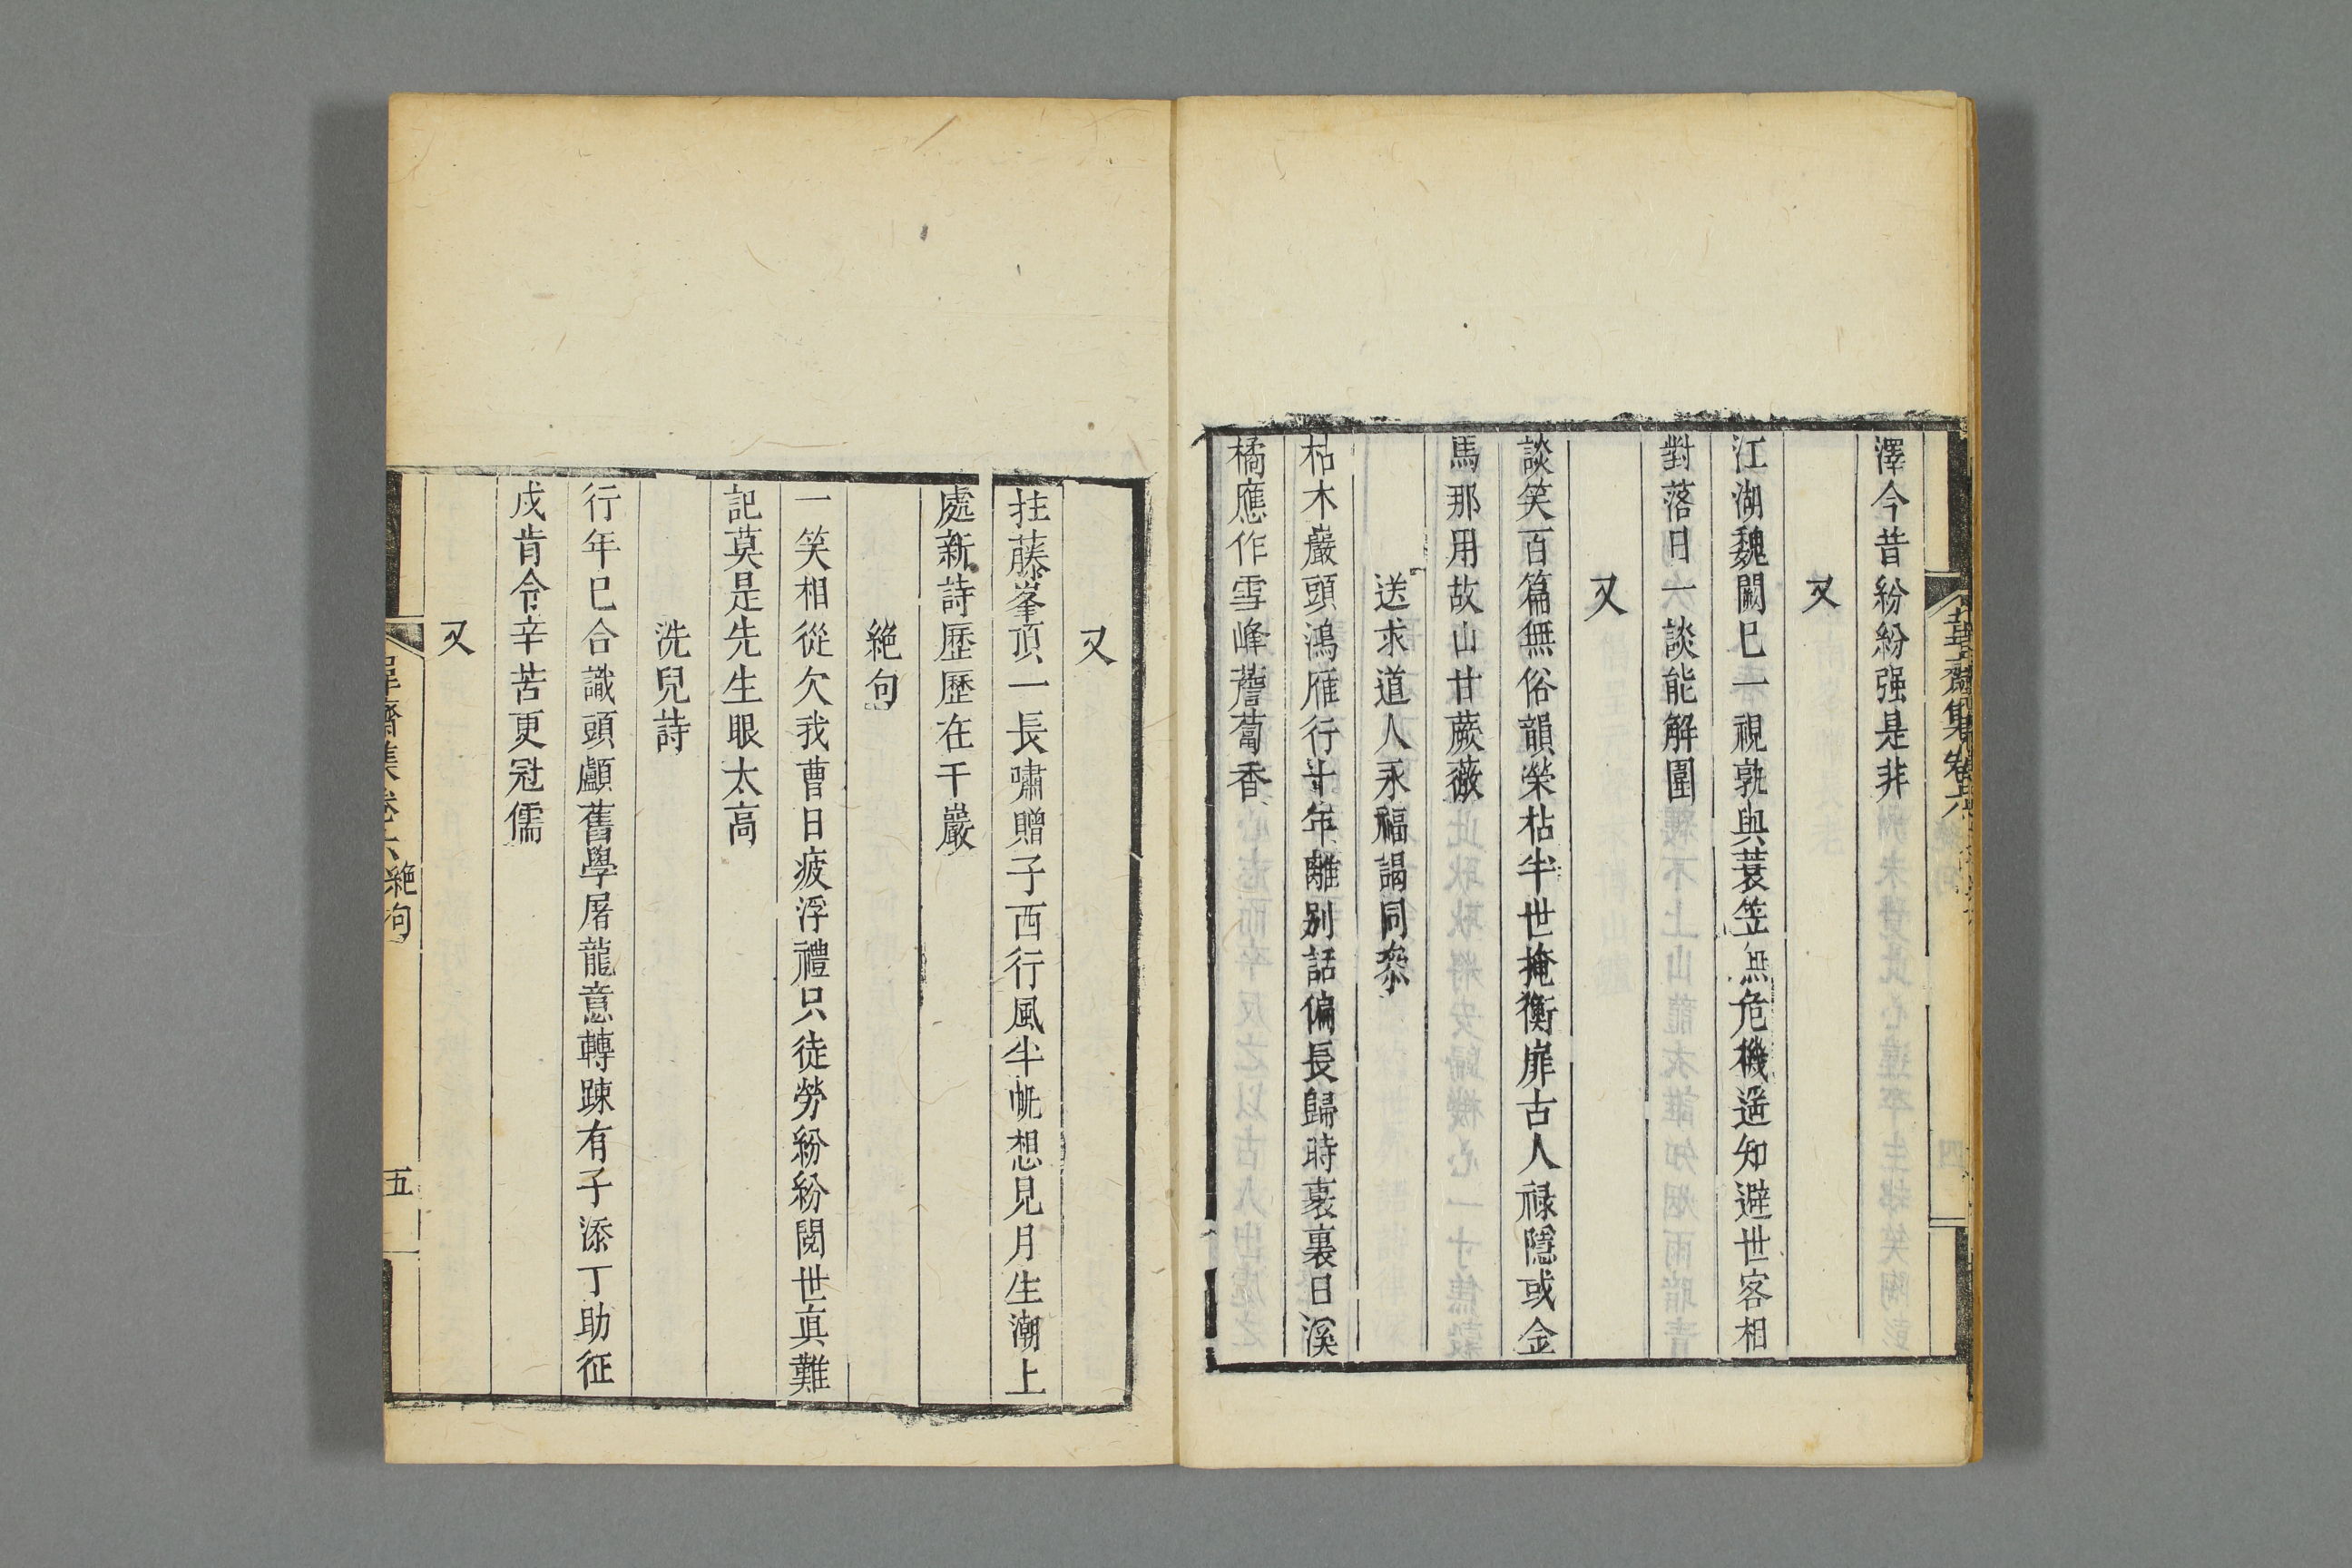 韋齋集卷六
澤今昔紛紛强是非
又
江湖魏闕已一視孰與蓑笠無危機遥知避世客相
對落日一談能解圍
又
談笑百篇無俗韻榮枯半世掩衡扉古人禄隱或金
馬那用故山甘蕨薇
送求道人永福謁同叅
枯木巖頭鴻雁行廿年離别話偏長歸時裹裏日溪
橘應作雪峰薝蔔香
又
拄藤峯頂一長嘯贈子西行風半帆想見月生潮上
處新詩歷歷在千巖
絶句
一笑相從欠我曹日疲浮禮只徒勞紛紛閱世真難
記莫是先生眼太高
洗兒詩
行年已合識頭顱舊學屠龍意轉踈有子添丁助征
戍肯令辛苦更冠儒
又
韋齋集卷六 絶句 五